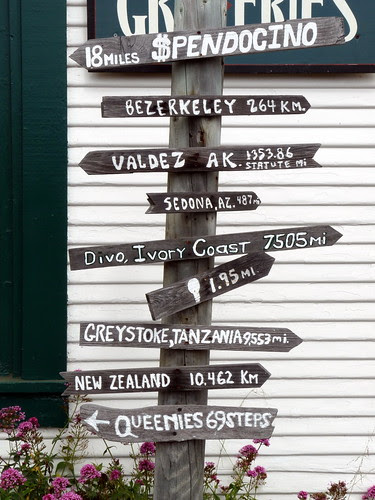 GROCERIES
18 MILES $PENDOCINO
BEZERKELEY 264 KM.
VALDEZ AK. 1353.86
STATUTE Mi
SEDONA, AZ. 487 mi
Divo, Ivory Coast 7505 mi
1.95 mi.
GREYSTOKE, TANZANIA 9553 mi.
NEW ZEALAND 10.462 KM
QUEENIES 69 STEPS